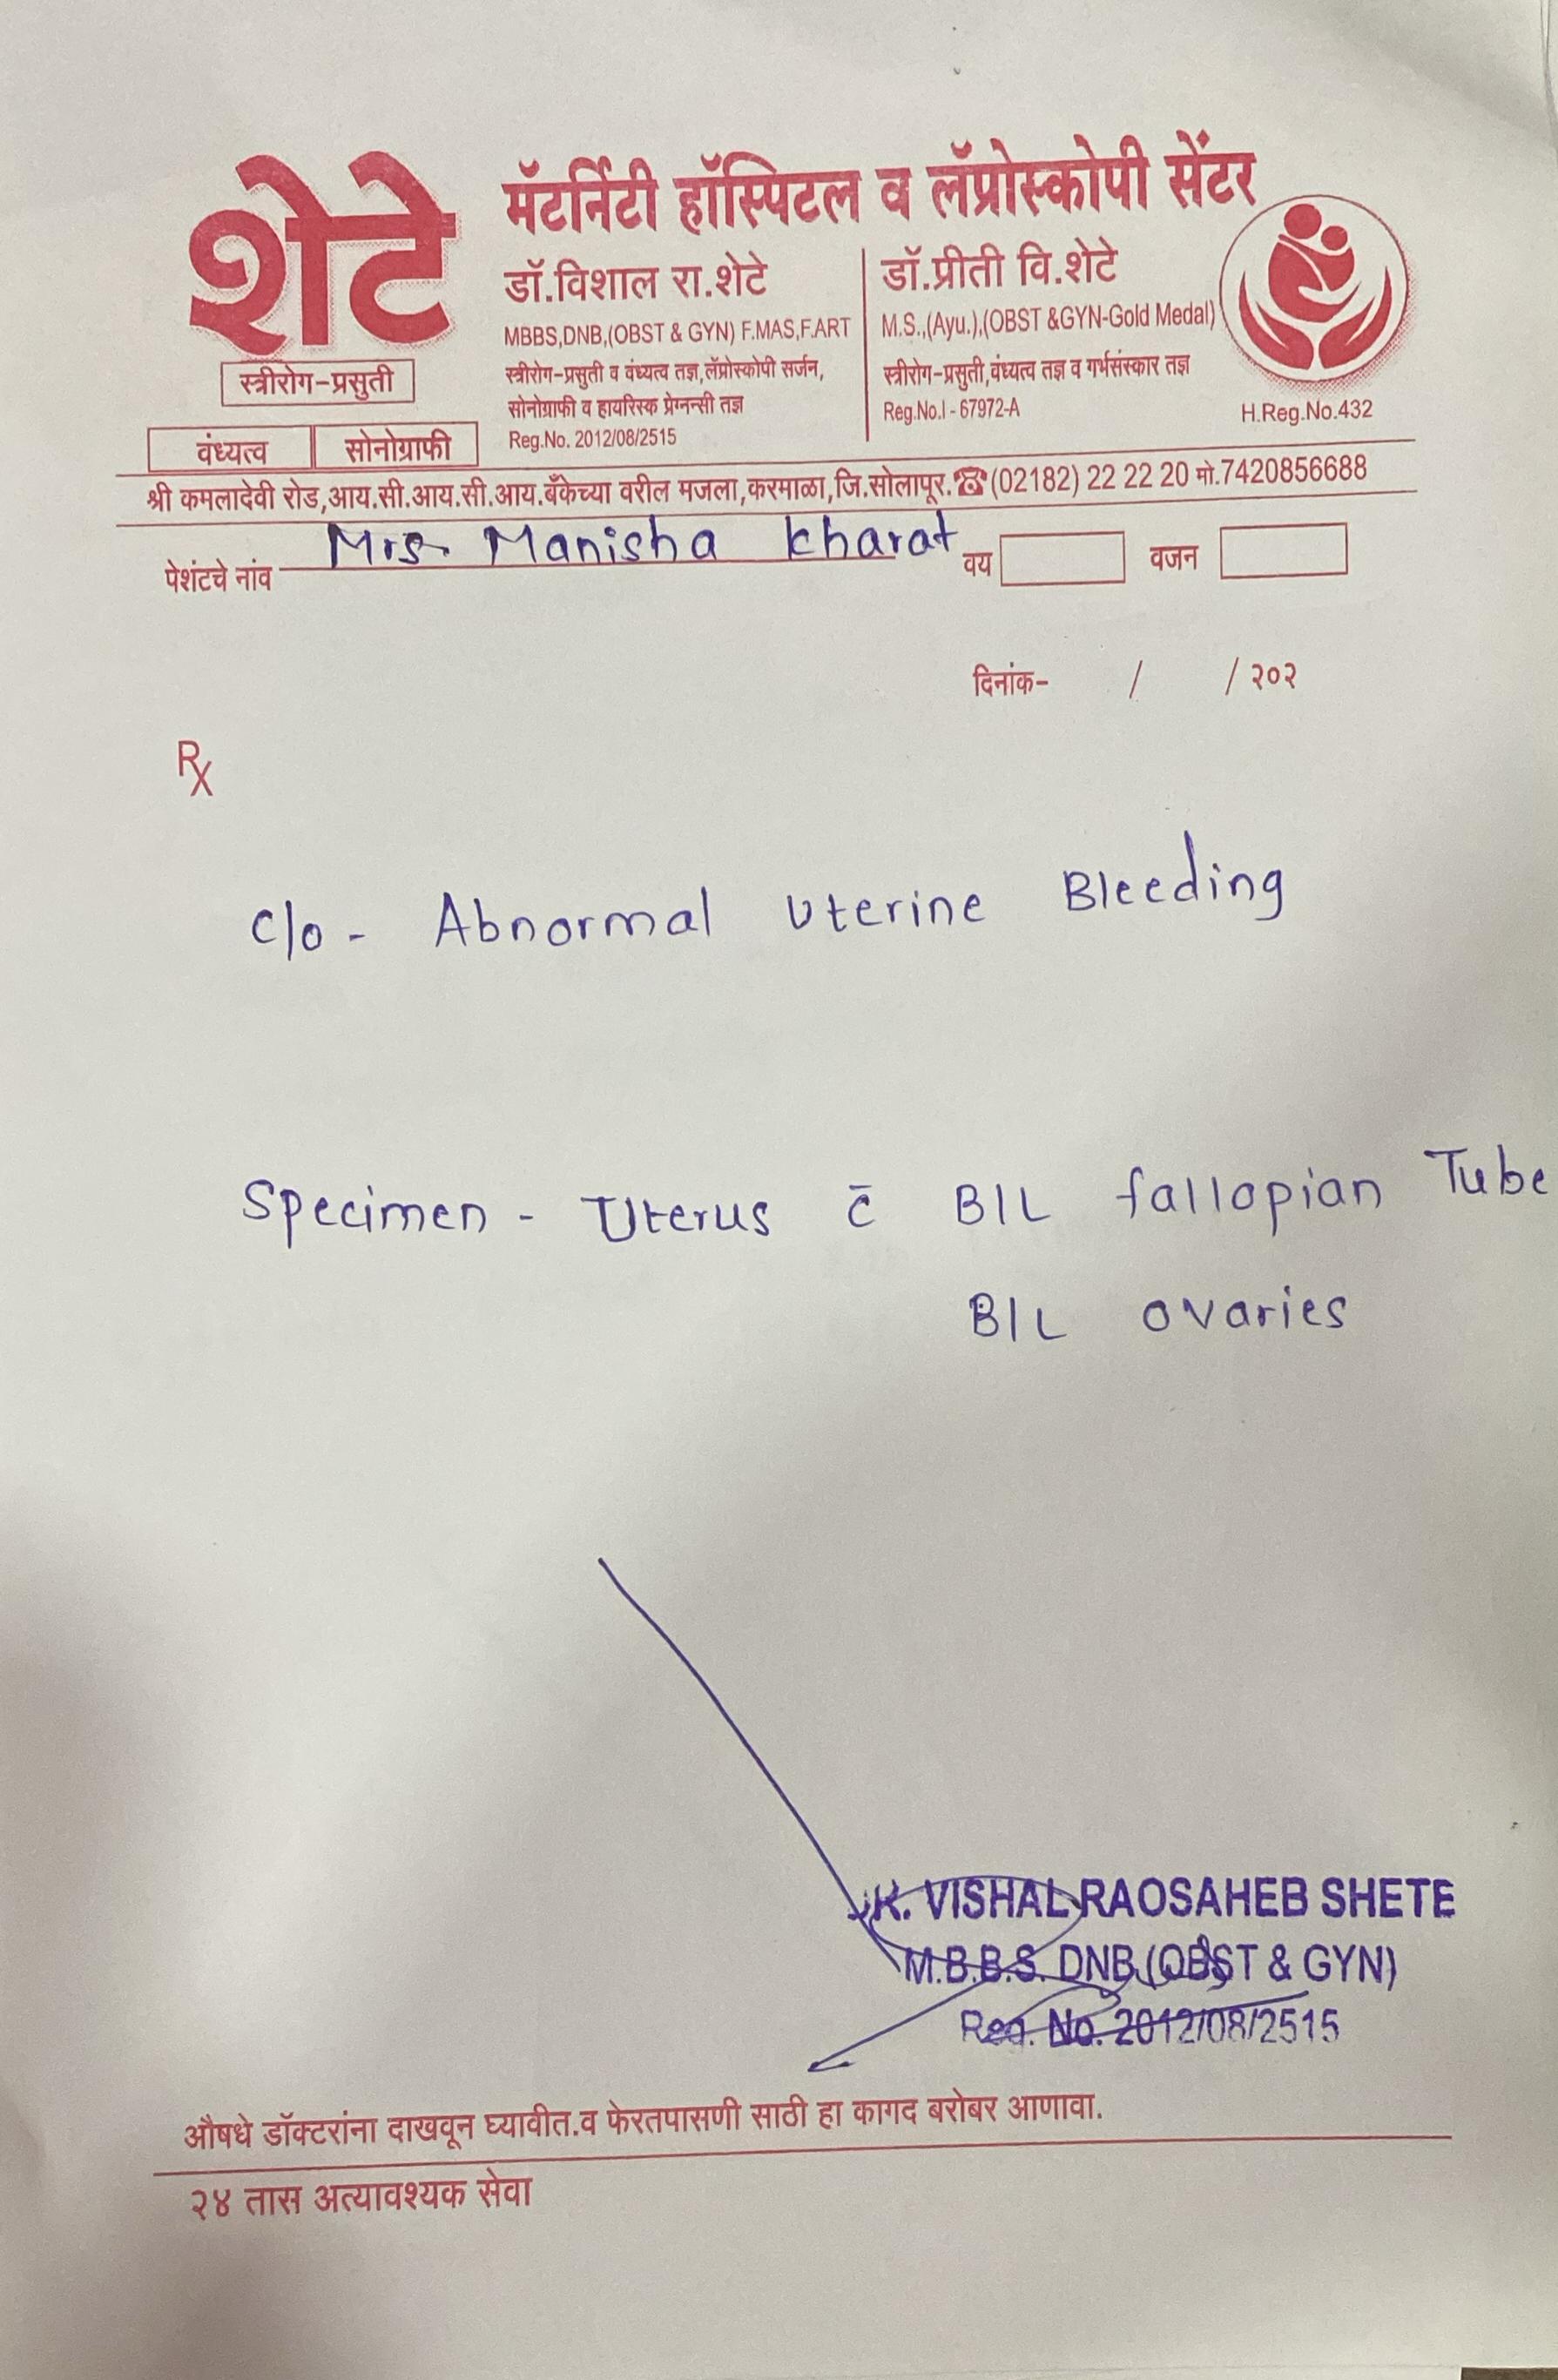 शेटे
स्त्रीरोग-प्रसुती
वंध्यत्व सोनोग्राफी
मॅटर्निटी हॉस्पिटल व लॅप्रोस्कोपी सेंटर
डॉ.विशाल रा.शेटे
MBBS,DNB,(OBST & GYN) F.MAS,F.ART
स्त्रीरोग-प्रसुती व वंध्यत्व तज्ञ,लॅप्रोस्कोपी सर्जन,
सोनोग्राफी व हायरिस्क प्रेग्नन्सी तज्ञ
Reg.No. 2012/08/2515
डॉ.प्रीती वि.शेटे
M.S.,(Ayu.),(OBST &GYN-Gold Medal)
स्त्रीरोग-प्रसुती,वंध्यत्व तज्ञ व गर्भसंस्कार तज्ञ
Reg.No.I - 67972-A
H.Reg.No.432
श्री कमलादेवी रोड,आय.सी.आय.सी.आय.बँकेच्या वरील मजला,करमाळा,जि.सोलापूर.☎(02182) 22 22 20 मो.7420856688
पेशंटचे नांव Mrs. Manisha Kharat वय वजन
दिनांक- / / २०२
Rx
C/o - Abnormal Uterine Bleeding
Specimen - Uterus c̄ B/L fallopian Tube
B/L ovaries
DR. VISHAL RAOSAHEB SHETE
M.B.B.S. DNB (OBST & GYN)
Reg. No. 2012/08/2515
औषधे डॉक्टरांना दाखवून घ्यावीत.व फेरतपासणी साठी हा कागद बरोबर आणावा.
२४ तास अत्यावश्यक सेवा